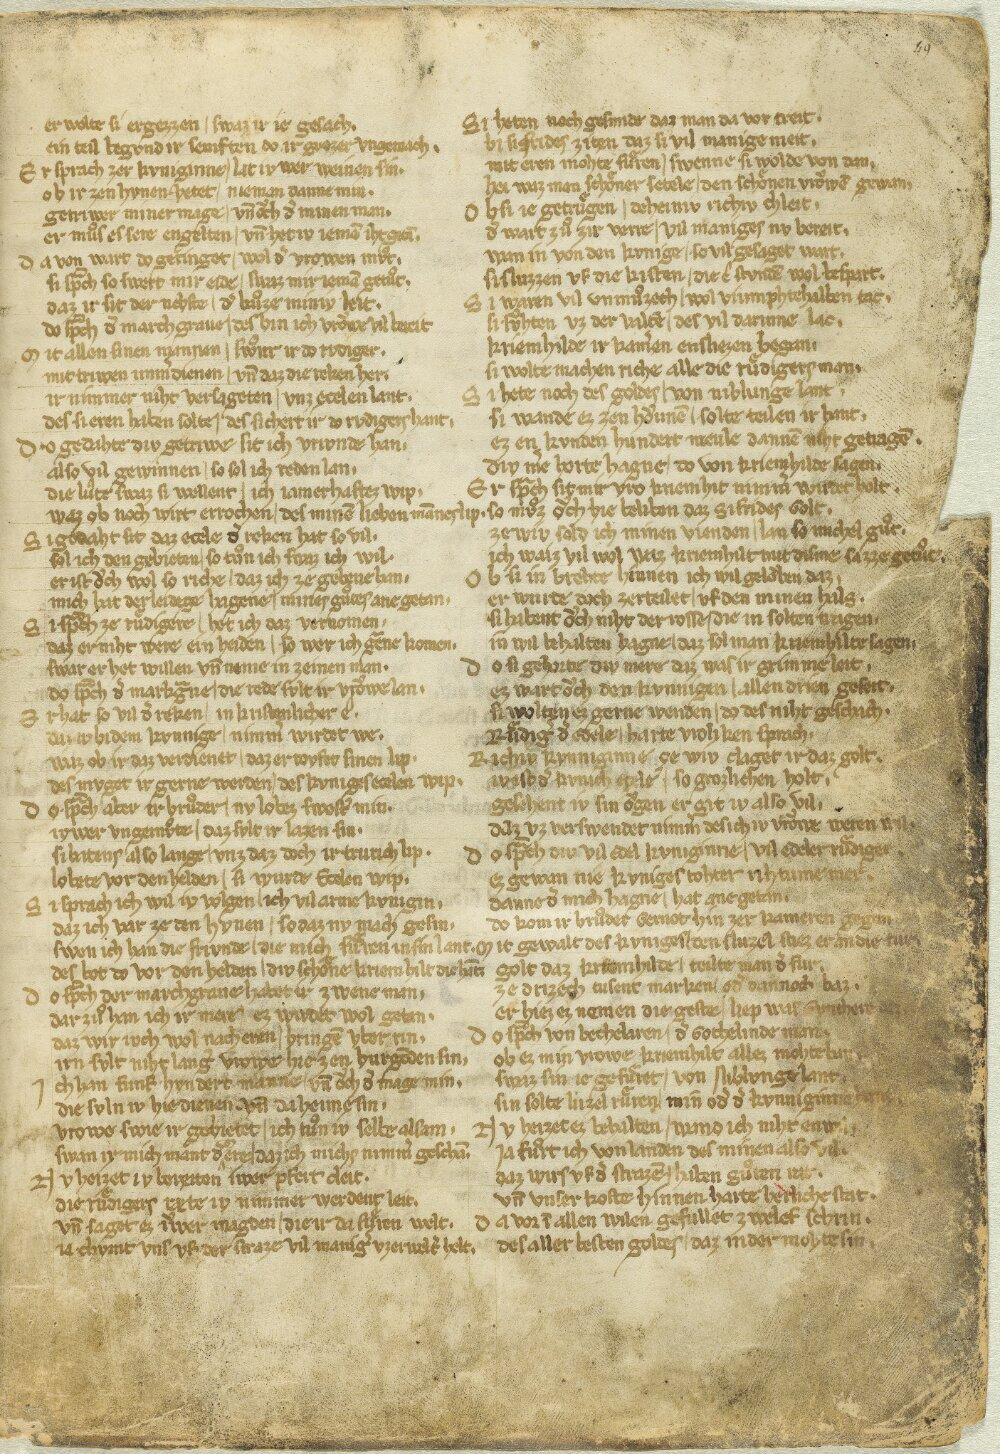 49
er wolte si ergezzen / swaz ir ie gesach.
ein teil begvnd ir seniften do ir grozer vngemach.
E r sprach zer kvniginne / lat iv wer weinen sin.
ob ir zen hvnen hetet / nieman danne min.
getriwer miner mage / vn̄ ovch d̾ minen man.
er mvͦs es sere engelten / vn̄ het iv iemen iht getan.
D a von wart do geringet / wol d̾ vrowen mvͦt.
si sp̾ch so swert mir eide / swaz mir iemen getvͦt.
daz ir sit der nehste / d̾ bvͦze miniv leit.
do sp̾ch d̾ marchgraue / des bin ich vrowe vil bereit
M it allen sinen mannen / swͦr ir do rvdiger.
mit triwen imm̾ dienen / vn̄ daz die reken her.
ir nimmer niht versageten / vnz etzelen lant.
des si eren haben solte / des sichert ir do rvdigers hant.
D o gedahte div getriwe / sit ich vrivnde han.
also vil gewinnen / so sol ich reden lan.
die livte swaz si wellent / ich iamerhaftez wip.
waz ob noch wirt errochen / des minen lieben mannez lip.
S i gedaht sit daz etzele d̾ reken hat so vil.
sol ich den gebieten / so tvͦn ich swaz ich wil.
er ist ovch wol so riche / daz ich ze gebene han.
mich hat der leidege hagene / mines gvͦtes ane getan.
S i sp̾ch ze rvͤdigere / het ich daz vernomen.
daz er niht were ein heiden / so wer ich gerne komen.
swar er het willen vn̄ neme in zeinen man.
do sp̾ch d̾ markgraue / die rede svlt ir vrowe lan.
E r hat so vil d̾ reken / in kristenlicher e.
daz iv bi dem kvnige / nimm̾ wirdet we.
waz ob ir daz verdienet / daz er tovfet sinen lip.
des mvget ir gerne werden / des kvniges etzelen wip.
D o sp̾ch aber ir brvͦder / nv lobez swester min.
iwer vngemvͤte / daz svlt ir lazen sin.
si batens also lange / vnz daz doch ir trurich lip.
lobete vor den helden / si wurde Etzelen wip.
S i sprach ich wil iv volgen / ich vil arme kvnigin.
daz ich var ze den hvnen / so daz nv mach gesin.
swen ich han die frivnde / die mich fuͤren in sin lant.
des bot do vor den helden / div schoͤne kriemhilt die hant.
D o sp̾ch der marchgraue / habet ir zwene man.
dar zvͦ han ich ir mere / ez wirdet wol getan.
daz wir ivch wol nach eren / bringen vber rin.
irn svlt niht lang̾ vrowe / hie zen burgonden sin.
I ch han funf hvndert manne / vn̄ ovch d̾ mage min.
die svln iv hie dienen / vn̄ da heime sin.
vrowe swie ir gebietet / ich tvͦn iv selbe alsam.
swan ir mich mant d̾ mere / daz ich michs nimm̾ gescham.
N v heizet iv bereiten / iwer pfert cleit.
die rvͤdigers rete iv nimmer werdent leit.
vn̄ saget ez iwer magden / die ir da fuͤren welt.
ia chvmt vns vf der straze vil manig̾ vzerwelt̾ helt.
S i heten noch gesmide daz man da vor treit.
bi sifrides ziten daz si vil manige meit.
mit eren mohte fuͤren / swenne si wolde von dan.
hei waz man schoͤner setele / den schoͤnen vrowen gewan.
O b si ie getruͤgen / deheiniv richiv chleit.
d̾ wart zvͦ zir verte / vil maniges nv bereit.
wan in von den kvnige / so vil gesaget wart.
si sluzzen vf die kisten / die e stunden wol bespart.
S i waren vil vnmvͤzech / wol viumphtehalben tac.
si svͦhten vz der valde / des vil darinne lac.
kriemhilde ir kamern ensliezen began.
si wolte machen riche alle die rvͤdigers man.
S i hete noch des goldes / von niblvnge lant.
si wande ez zen hvnnen / solte teilen ir hant.
ez en kvnden hundert mevle dannen niht getragen.
div mere horte hagne / do von kriemhilde sagen.
E r sp̾ch sit mir vro kriemhilt nimm̾ wirdet holt.
so mvͦz ovch hie beliben daz Sifrides Golt.
zewiv sold ich minen vienden / lan so michel gvͦt.
ich waiz vil wol waz kriemhilt mit disme schazze getvͦt.
O b si in brehte hinnen / ich wil gelovben daz.
er wurte doch zerteilet / vf den minen haz.
si habent ovch niht der rosse / die in solten tragen.
in wil behalten hagne / daz sol man kriemhilte sagen.
D o si gehorte div mere daz was ir grimme leit.
ez wart ovch den kvnigen / allen drien geseit.
si wolten ez gerne wenden / do des niht geschach.
Rvͤdig̾ d̾ edele / harte vroliken sprach.
R ichiv kvniginne / ze wiv claget ir daz golt.
iv ist d̾ kvnich etzele / so grozlichen holt.
gesehent iv sin ovgen er git iv also vil.
daz irz verswendet nimm̾ des ich iv vrowe weren wil.
D o sp̾ch div vil edel kvniginne / vil edeler rvͤdiger
ez gewan nie kvniges tohter rihtume mer.
danne d̾ mich hagne / hat ane getan.
do kom ir brvͦder Gernot hin zer kameren gegan.
M it gewalt des kvniges / den sluzel stiez er an die tur.
golt daz kriemhilde / teilte man d̾ fur.
ze drizech tusent marken / od dannoch baz.
er hiez ez nemen die geste / liep was Gunthere daz.
D o sp̾ch von bechelaren / d̾ Gotelinde man.
ob ez min vrowe kriemhilt allez mohte han.
swaz sin ie gefuͤret / von Niblvnge lant.
sin solte luzel rvͤren min od d̾ kvniginne hant.
N v heizet ez behalten / wand ich niht enwil.
Ja fvrt ich von landen des minen also vil.
daz wirs vf d̾ strazen / haben gvͦten rat.
vn̄ vnser koste hinnen harte herliche stat.
D a vor in allen wilen gefullet zwelef schrin.
des aller besten goldes / daz inder mohte sin.